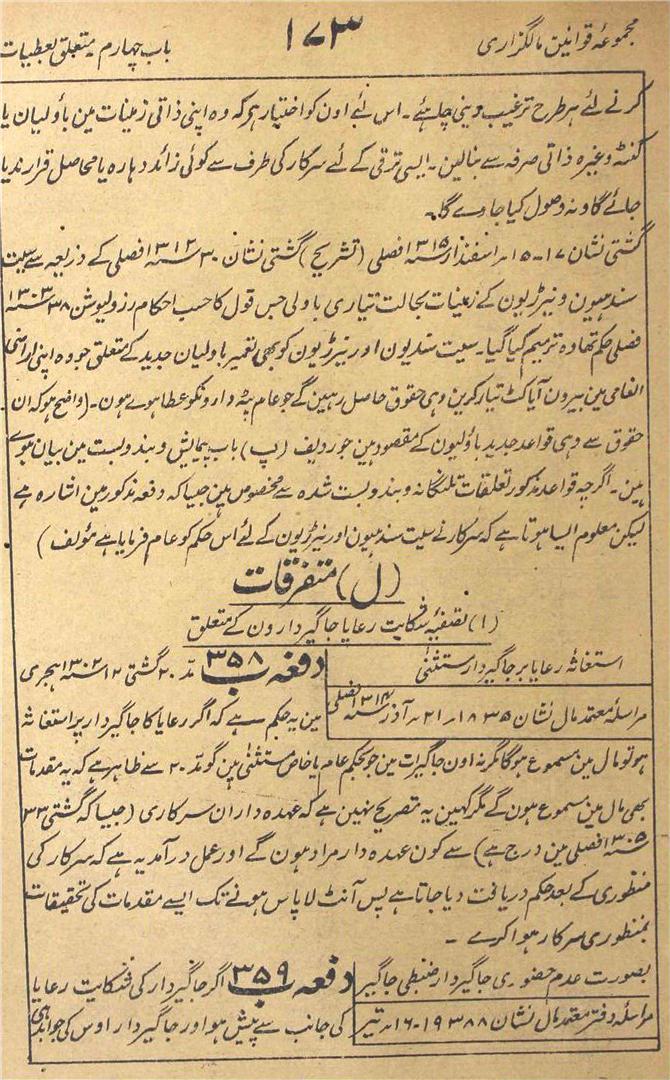 مجموعۂ قوانین مالگزاری ۱۷۳ باب چہارم متعلق بعطیات
کرنے لئے ہر طرح ترغیب دینی چاہئے۔ اس لئے اون کو اختیار ہی کہ وہ اپنی ذاتی زمینات مین باؤلیان یا
کنٹہ وغیرہ ذاتی صرفہ سے بنالین۔ ایسی ترقی کے لئے سرکار کی طرف سے کوئی زائد دہارہ یا محاصل قرار ندیا
جائے گا ونہ وصول کیا جاوے گا۔
گشتی نشان ۱۷۔ ۱۵۔ اسفندار ۱۳۱۵ سنہ افصلی (تشریح) گشتی نشان ۳۰ ۱۳۱۲ سنہ افصلی کے ذریعہ سے سیت
سندہیون و نیرڑیون کے زمینات بحالت تیاری باولی جس قول کا حسب احکام رزولیوشن ۳۸ ۱۳۰۳ سنہ
فصلی حکم تھا وہ ترمیم کیا گیا۔ سیت سندیون اور نیرڑیون کو بھی تعمیر باولیان جدید کے متعلق جو وہ اپنی اراضی
انعامی مین بیرون آیاکٹ تیار کرین وہی حقوق حاصل رہین گے جو عام پٹہ دارونکو عطا ہوے ہون۔ (واضح ہو کہ ان
حقوق سے وہی قواعد جدید باؤلیون کے مقصود ہین جو ردیف (پ) باب پیمایش و بندوبست مین بیان ہوے
ہین۔ اگرچہ قواعد مذکور تعلقات تلنگانہ و بندوبست شدہ سے مخصوص ہین جیسا کہ دفعہ مذکور مین اشارہ ہے
لیکن معلوم ایسا ہوتا ہے کہ سرکار نے سیت سندہیون اور نیرڑیون کے لئے اس حکم کو عام فرمایا ہے مؤلف)
(ل) متفرقات
(۱) تصفیہ شکایت رعایا جاگیردارون کے متعلق
استغاثہ رعایا بر جاگیردار مستثنیٰ
دفعہ ۳۵۸ ب مد ۲۰ گشتی ۱۲ ۱۳۰۲ سنہ ہجری
مراسلہ معتمد مال نشان ۱۸۳۵۔ ۲۱۔ آذر ۱۳۱۴ سنہ فصلی
مین یہ حکم ہے کہ اگر رعایا کا جاگیردار پر استغاثہ
ہو تو مال مین مسموع ہوگا مگر نہ اون جاگیرات مین جو بحکم عام یا خاص مستثنیٰ ہین گو مد ۲۰ سے ظاہر ہے کہ یہ مقدمات
بھی مال مین مسموع ہون گے مگر کہین یہ تصریح نہین ہے کہ عہدہ داران سرکاری (جیسا کہ گشتی ۳۳
۱۳۰۵ سنہ افصلی مین درج ہے) سے کون عہدہ دار مراد ہون گے اور عمل درآمد یہ ہے کہ سرکار کی
منظوری کے بعد حکم دریافت دیا جاتا ہے پس آنٹ لا پاس ہونے تک ایسے مقدمات کی تحقیقات
بمنظوری سرکار ہوا کرے۔
بصورت عدم حضوری جاگیردار ضبطی جاگیر
دفعہ ۳۵۹ ب اگر جاگیردار کی شکایت رعایا
مراسلہ دفتر معتمد مال نشان ۱۹۳۸۸۔ ۱۶۔ تیر
کی جانب سے پیش ہو اور جاگیردار اوس کی جوابدہی